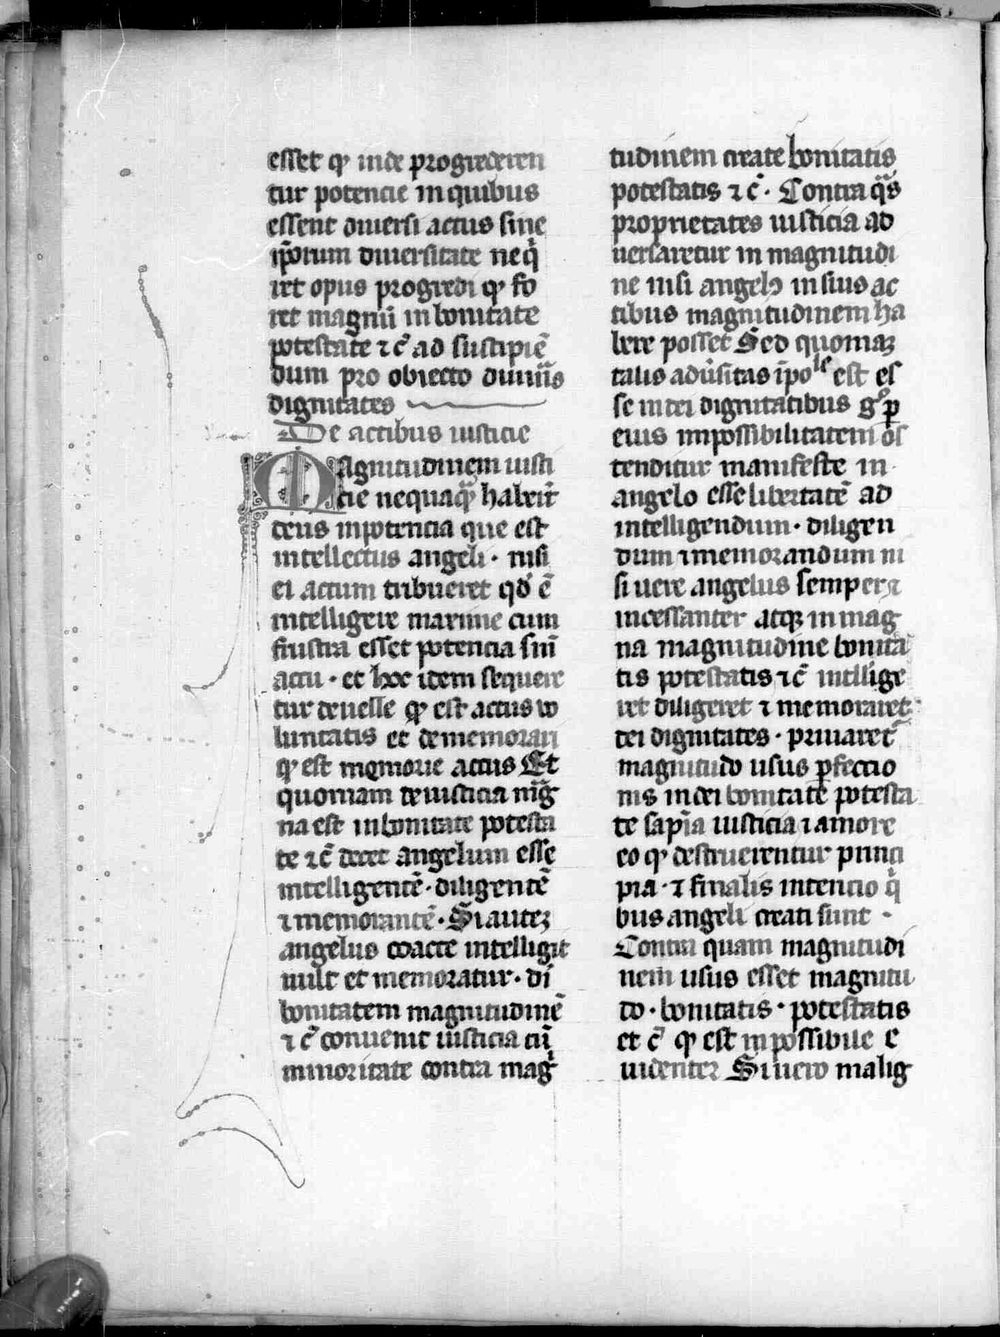 esset qͥ inde progrederen
tur potencie in quibus
essent diuersi actus sine
ip̄orum diuersitate neq̄
iret opus progredi qͥ fo
ret magnū in bonitate
potestate ⁊ c̄ ad suscipiē
dum pro obiecto diuinas
dignitates
De actibus iusticie
Magnitudinem iusti
cie nequaq̄ haberēt
ceus inpotencia que est
intellectus angeli · nisi
ei actum tribueret qd̕ ē
intelligere maxime cum
frustra esset potencia sin̄
actu · et hoc idem sequere
tur de uelle qͥ est actus uo
luntatis et de memorari
qͥ est memorie actus Et
quoniam de iusticia maḡ
na est in bonitate potesta
te ⁊ c̄ decet angelum esse
intelligentē · diligentē
⁊ memorantē · Si autez
angelus coacte intelligit
uult et memoratur · di
bonitatem magnitudinē
⁊ c̄ conuenit iusticia cū
minoritate contra maḡ
tudinem create bonitatis
potestatis ⁊ c̄ · Contra q̄s
proprietates iusticia ad
uersaretur in magnitudi
ne nisi angelꝰ in suis ac
tibus magnitudinem ha
bere posset Sed quoniaz
talis adu̕sitas īpoˡᵉ est es
se inter dignitatibus gº ꝑ
eius impossibilitatem os
tenditur manifeste in
angelo esse libertatē ad
intelligendum · diligen
dum ⁊ memorandum ni
si uere angelus semper ⁊
incessanter atqꝫ in mag
na magnitudine bonita
tis potestatis ⁊ c̄ intellige
ret diligeret ⁊ memoraret
dei dignitates · priuaret̄
magnitudo usus ꝑfectio
nis in dei bonitate potesta
te sapīa iusticia ⁊ amore
eo qͥ destruerentur princi
pia · ⁊ finalis intencio q̄
bus angeli creati sunt ·
Contra quam magnitudi
nem usus esset magnitu
do · bonitatis · potestatis
et c̄ qͥ est inpossibile e
uidenter Si uero malig